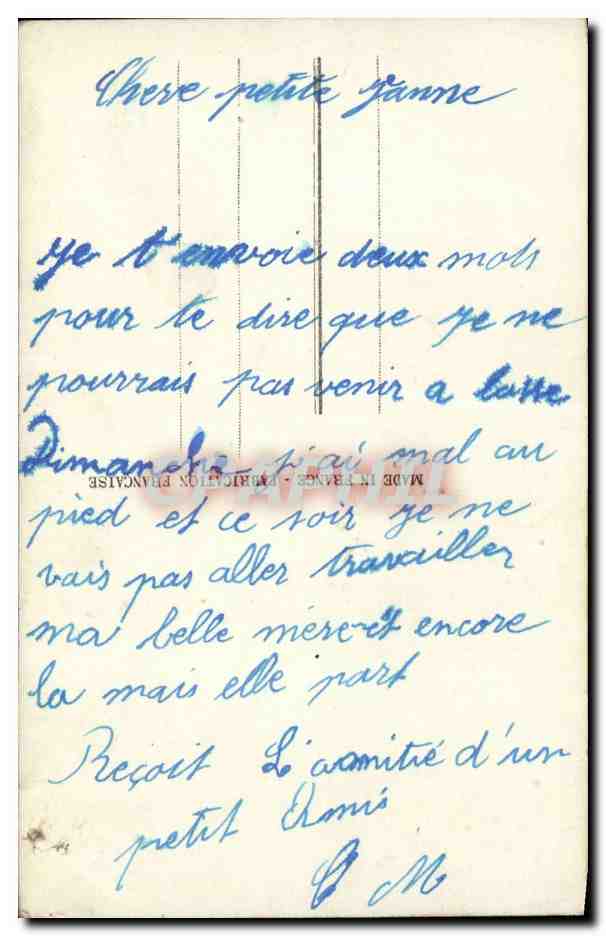 Chere petite Janne
Je t'envoie deux mots
pour te dire que je ne
pourrais pas venir a
Dimanche j'ai mal au
MADE IN FRANCE - FABRICATION FRANÇAISE
pied et ce soir je ne
vais pas aller travailler
ma belle mère et encore
la mais elle part
Reçoit L'amitié d'un
petit Amis
C M